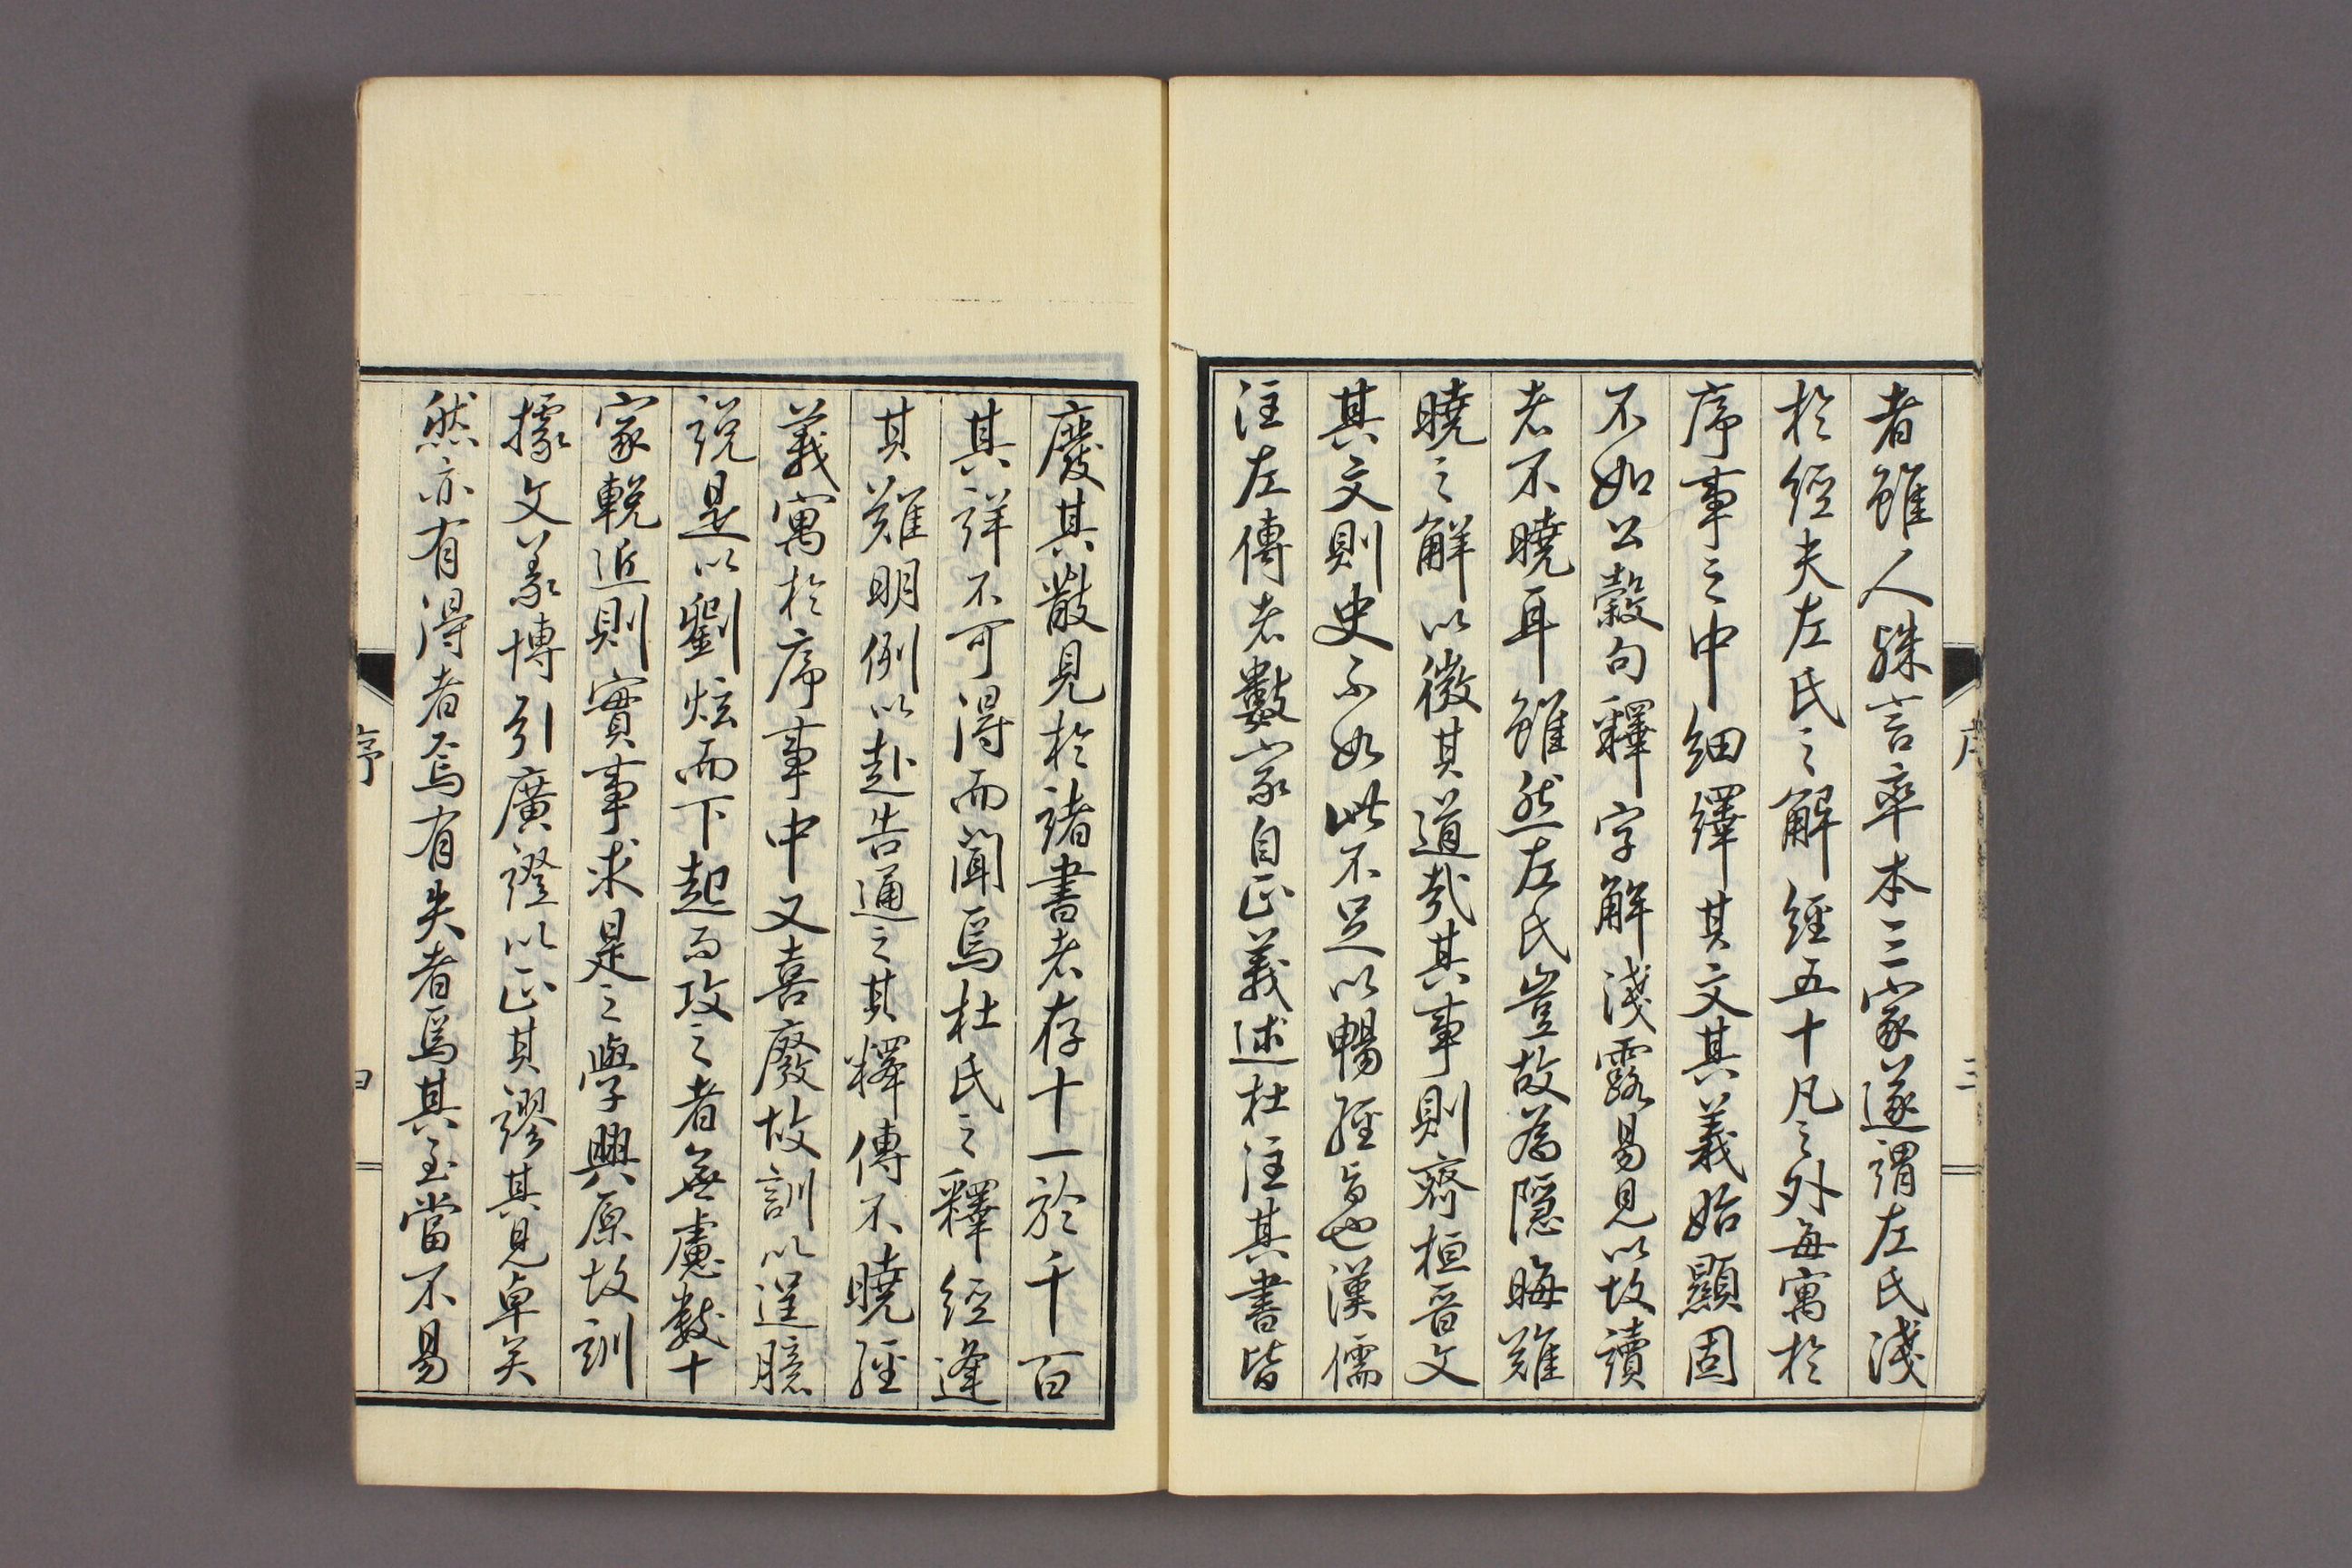 者雖人殊言率本三家遂謂左氏淺
於經夫左氏之解經五十凡之外每寓於
序事之中細繹其文其義始顯固
不如公穀句釋字解淺露易見以故讀
者不曉耳雖然左氏豈故為隱晦難
曉之解以微其道哉其事則齊桓晉文
其文則史不如此不足以暢經旨也漢儒
注左傳者數家自正義述杜注其書皆
廢其散見於諸書者存十一於千百
其詳不可得而聞焉杜氏之釋經逢
其難明例以赴告通之其釋傳不曉經
義寓於序事中又喜廢故訓以逞臆
說是以劉炫而下起而攻之者無慮數十
家輓近則實事求是之學興原故訓
據文義博引廣證以正其謬其見卓矣
然亦有得者焉有失者焉其至當不易
序
三
序